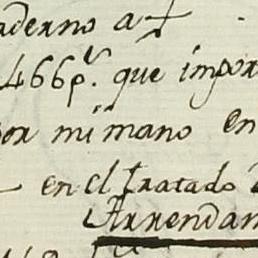 aderno a
466p.s que impor
por mi mano en
en el tratado
Arrendam